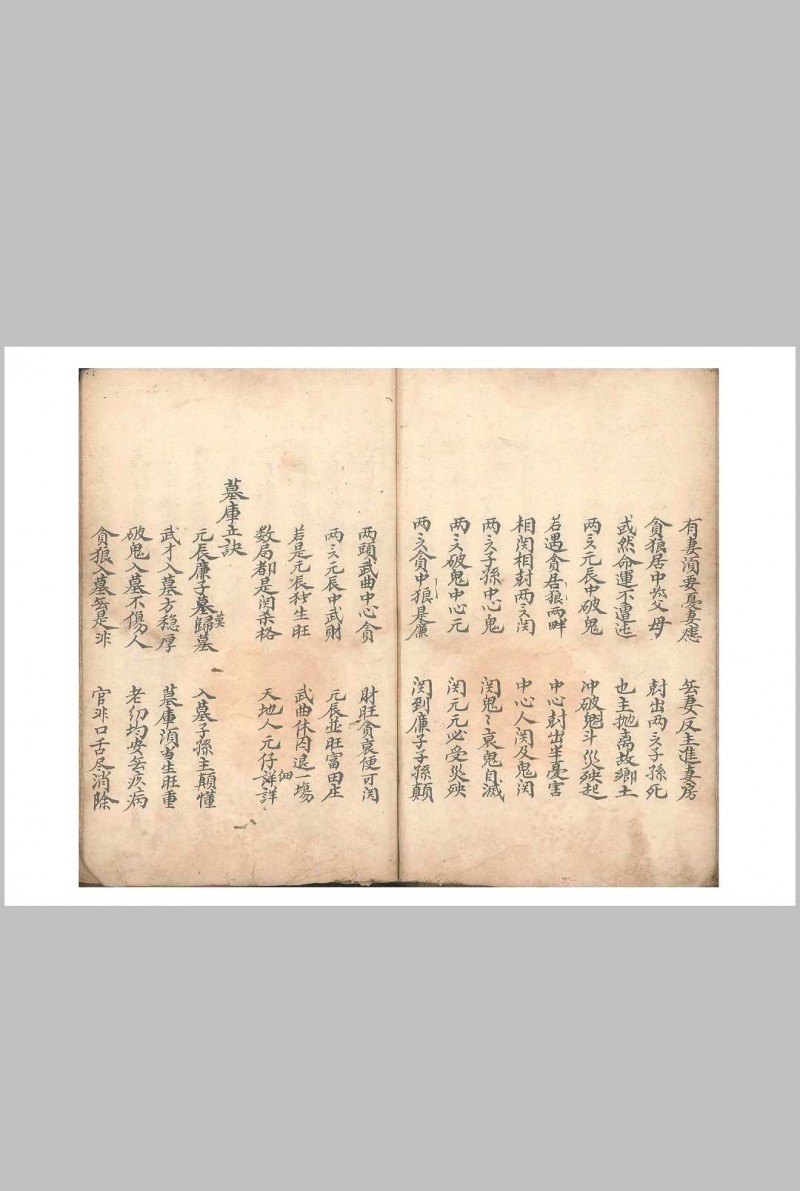 有妻須要憂妻應 無妻反主進妻房
貪狼居中於父母 封出兩文子孫死
或然命運不遭迍 也主拋离故鄉土
两文元辰中破鬼 冲破魁斗災殃起
若遇貪居狼両畔 中心封出半憂害
相関相封两文関 中心人関及鬼関
两文子孫中心鬼 関鬼〻衰鬼自滅
两文破鬼中心元 関元元必受災殃
两文貪中狼是廉 関到廉子子孫顛
两頭武曲中心貪 財旺貪衰便可関
两文元辰中武財 元辰並旺富田庄
若是元辰 生旺 武曲休囚退一塲
数局都是関杀格 天地人元仔細詳
墓庫立訣
元辰廉子墓歸墓 入墓子孫主顛懂
武才入墓方稳厚 墓庫須当生旺重
破鬼入墓不傷人 老幼均安無疾病
貪狼入墓無是非 官非口舌尽消除